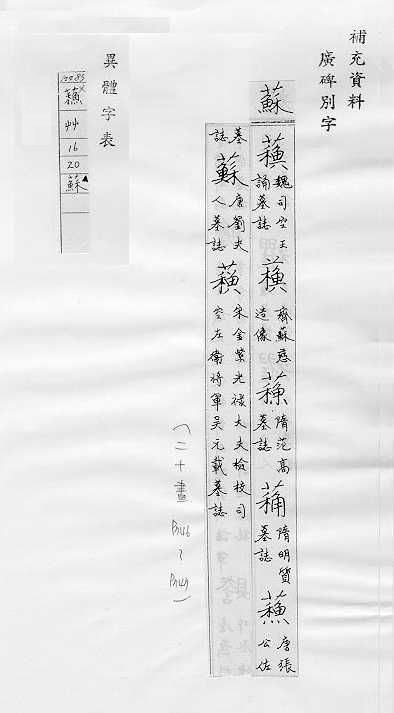 補充資料
廣碑別字
蘇
蘓魏司空王誦墓誌
蘓齊蘇慈造像
蘓隋范高墓誌
隋明質墓誌
蘓唐張公佐
墓誌
蘇唐劉夫人墓誌
蘓宋金紫光祿大夫檢校司空左衛將軍吳元載墓誌
(二十畫 P.446 ~ P.449)
異體字表
蘓
艸
16
20
蘇